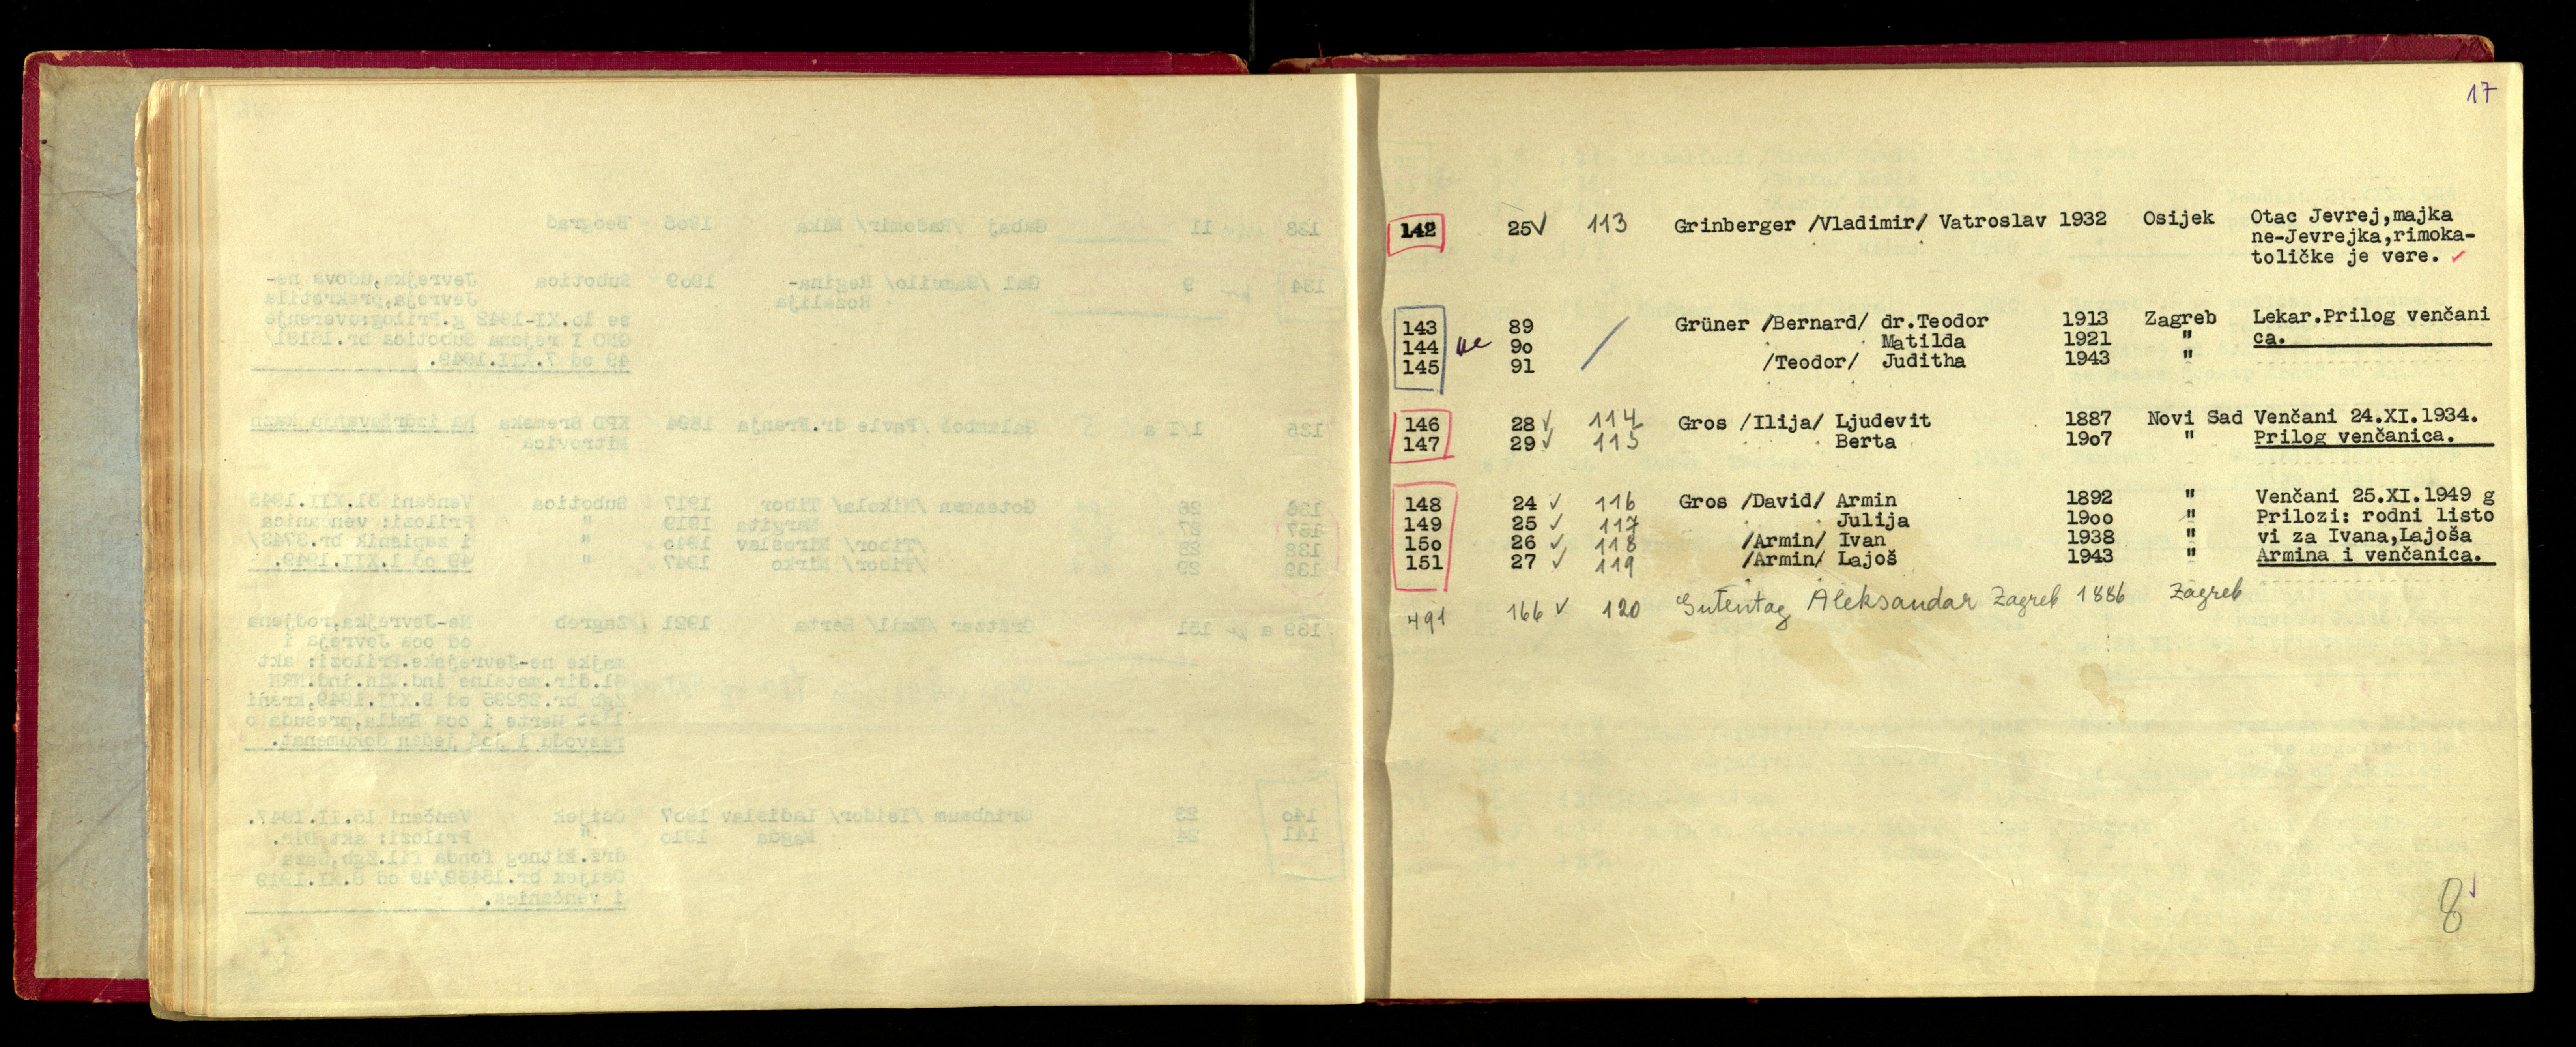 17
142 25✓ 113 Grinberger /Vladimir/ Vatroslav 1932 Osijek Otac Jevrej,majka
ne-Jevrejka,rimoka-
toličke je vere. ✓
143 89 / Grüner /Bernard/ dr.Teodor 1913 Zagreb Lekar.Prilog venčani
144 ne 9o Matilda 1921 " ca.
145 91 /Teodor/ Juditha 1943 "
146 28✓ 114 Gros /Ilija/ Ljudevit 1887 Novi Sad Venčani 24.XI.1934.
147 29✓ 115 Berta 19o7 " Prilog venčanica.
148 24 ✓ 116 Gros /David/ Armin 1892 " Venčani 25.XI.1949 g
149 25 ✓ 117 Julija 19oo " Prilozi: rodni listo
15o 26 ✓ 118 /Armin/ Ivan 1938 " vi za Ivana,Lajoša
151 27 ✓ 119 /Armin/ Lajoš 1943 " Armina i venčanica.
491 166 ✓ 120 Gutentag Aleksandar Zagreb 1886 Zagreb
8